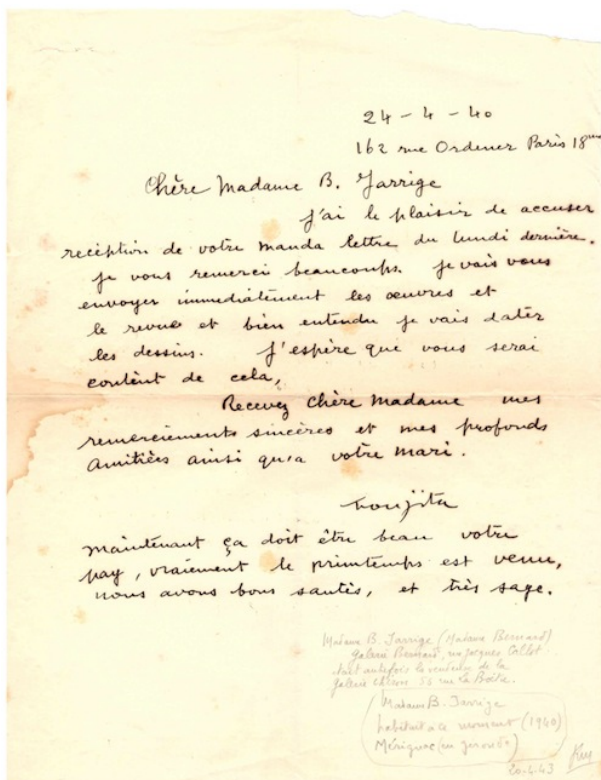 24 - 4 - 40
162 rue Ordener Paris 18me
Chère Madame B. Jarrige
J'ai le plaisir de accuser
recéption de votre manda lettre du lundi dernière.
je vous remerci beaucoups. je vais vous
envoyer immediâtement les œuvres et
le revue et bien entendu je vais datér
les dessins. J'espère que vous serai
contènt de cela,
Recevez Chère Madame mes
remerciements sincères et mes profonds
amitiées ainsi qu'a votre mari.
Foujita
maintenant ça doit être beau votre
pay, vraiement le printemps est venu,
nous avons bons santés, et très sage.
Madame B. Jarrige (Madame Bernard)
Galerie Bernard, rue Jacques Callot.
était autrefois la vendeuse de la
galerie Chéron 55 rue La Boëtie.
Madame B. Jarrige
habitait à ce moment (1940)
Mérignac (en gironde)
20.4.43